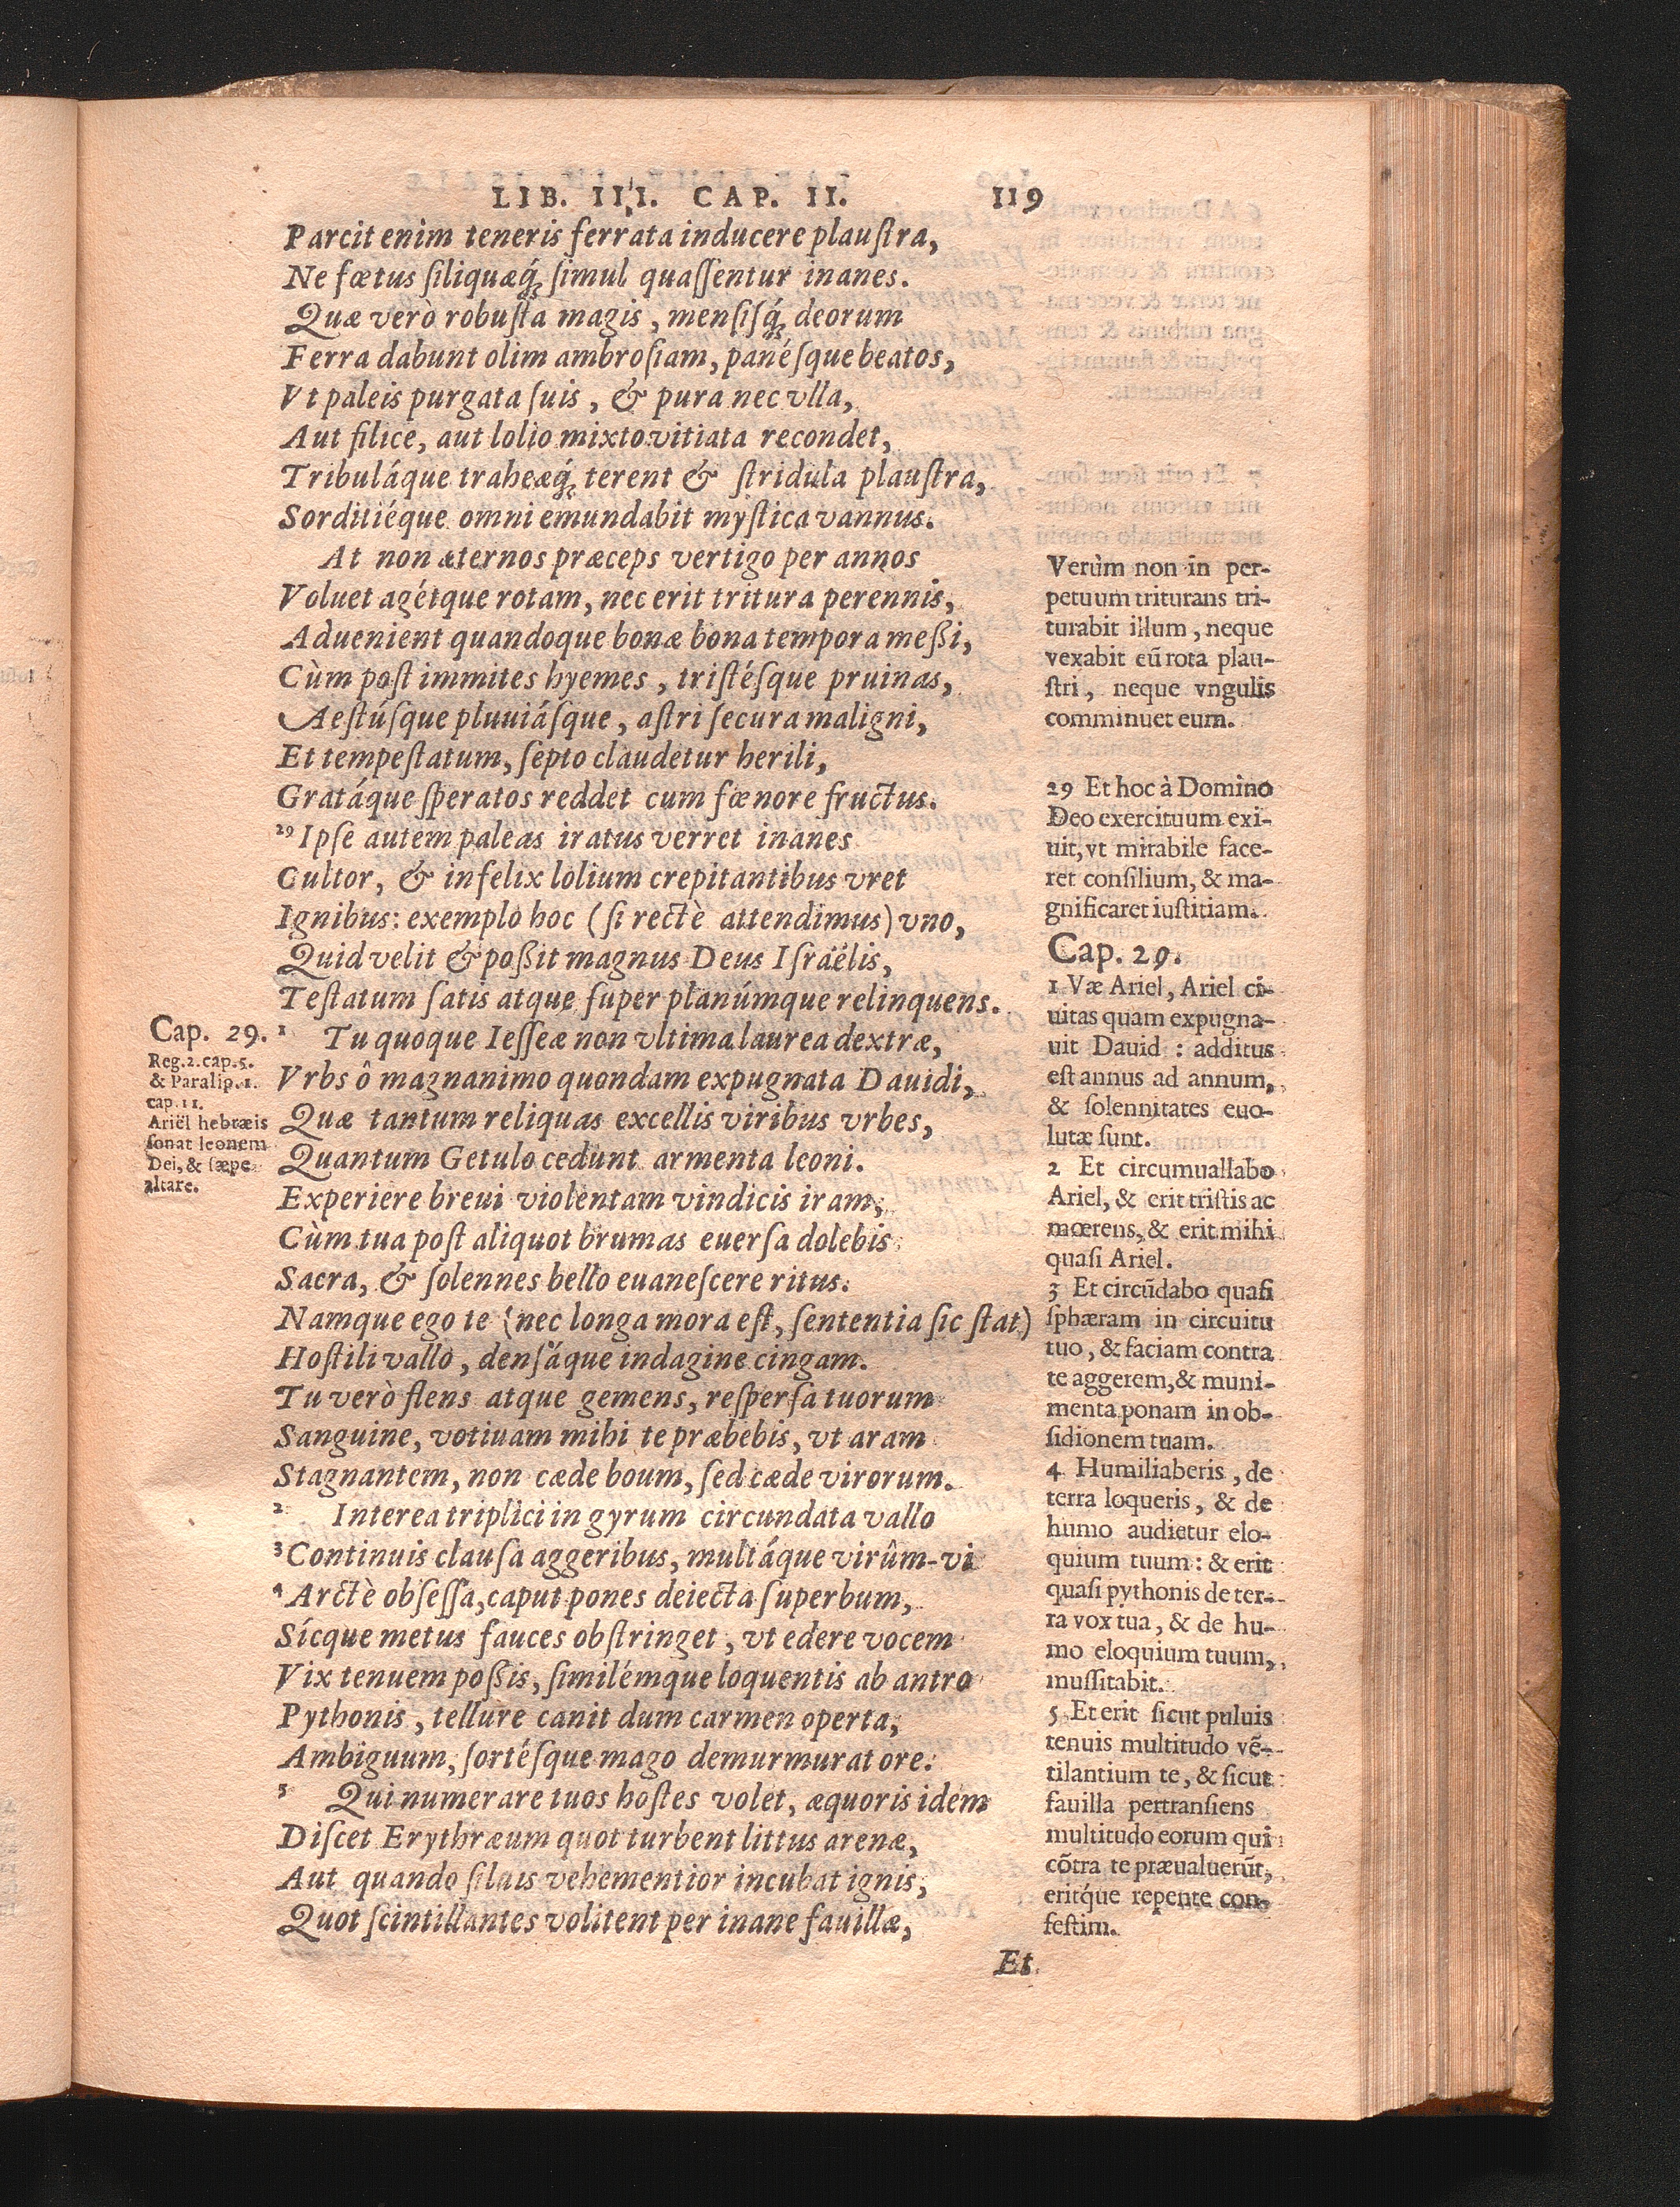 LIB. III. CAP. II. 119
Parcit enim teneris ferrata inducere plauſtra,
Ne fœtus ſiliquæq́; ſimul quaſſentur inanes.
Quæ verò robuſta magis, menſiſq́; deorum
Ferra dabunt olim ambroſiam, panéſque beatos,
Vt paleis purgata ſuis, & pura nec vlla,
Aut filice, aut lolio mixto vitiata recondet,
Tribuláque traheæq́; terent & ſtridula plauſtra,
Sorditiéque omni emundabit myſtica vannus.
At non æternos præceps vertigo per annos
Voluet agétque rotam, nec erit tritura perennis,
Aduenient quandoque bonæ bona tempora meßi,
Cùm poſt immites hyemes, triſtéſque pruinas,
Aeſtúſque pluuiáſque, aſtri ſecura maligni,
Et tempeſtatum, ſepto claudetur herili,
Gratáque ſperatos reddet cum fœnore fructus.
29 Ipſe autem paleas iratus verret inanes
Cultor, & infelix lolium crepitantibus vret
Ignibus: exemplo hoc (ſi rectè attendimus) vno,
Quid velit & poßit magnus Deus Iſraëlis,
Teſtatum ſatis atque ſuper planúmque relinquens.
1 Tu quoque Ieſſeæ non vltima laurea dextræ,
Vrbs ô magnanimo quondam expugnata Dauidi,
Quæ tantum reliquas excellis viribus vrbes,
Quantum Getulo cedunt armenta leoni.
Experiere breui violentam vindicis iram,
Cùm tua poſt aliquot brumas euerſa dolebis
Sacra, & ſolennes bello euaneſcere ritus.
Namque ego te (nec longa mora eſt, ſententia ſic ſtat)
Hoſtili vallo, denſáque indagine cingam.
Tu verò flens atque gemens, reſperſa tuorum
Sanguine, votiuam mihi te præbebis, vt aram
Stagnantem, non cæde boum, ſed cæde virorum.
2 Interea triplici in gyrum circundata vallo
3 Continuis clauſa aggeribus, multáque virûm-vi
4 Arctè obſeſſa, caput pones deiecta ſuperbum,
Sícque metus fauces obſtringet, vt edere vocem
Vix tenuem poßis, ſimilémque loquentis ab antro
Pythonis, tellure canit dum carmen operta,
Ambiguum, ſortéſque mago demurmurat ore.
5 Qui numerare tuos hoſtes volet, æquoris idem
Diſcet Erythræum quot turbent littus arenæ,
Aut quando ſiluis vehementior incubat ignis,
Quot ſcintillantes volitent per inane fauillæ,
Et
Cap. 29.
Reg. 2. cap. 5.
& Paralip. 1.
cap. 11.
Ariël hebræis
ſonat leonem
Dei, & ſæpe
altare.
Verùm non in per-
petuum triturans tri-
turabit illum, neque
vexabit eũ rota plau-
ſtri, neque vngulis
comminuet eum.
29 Et hoc à Domino
Deo exercituum exi-
uit, vt mirabile face-
ret conſilium, & ma-
gnificaret iuſtitiam.
Cap. 29.
1 Væ Ariel, Ariel ci-
uitas quam expugna-
uit Dauid : additus
eſt annus ad annum,
& ſolennitates euo-
lutæ ſunt.
2 Et circumuallabo
Ariel, & erit triſtis ac
mœrens, & erit mihi
quaſi Ariel.
3 Et circũdabo quaſi
ſphæram in circuitu
tuo, & faciam contra
te aggerem, & muni-
menta ponam in ob-
ſidionem tuam.
4 Humiliaberis, de
terra loqueris, & de
humo audietur elo-
quium tuum: & erit
quaſi pythonis de ter-
ra vox tua, & de hu-
mo eloquium tuum,
muſſitabit.
5 Et erit ſicut puluis
tenuis multitudo vẽ-
tilantium te, & ſicut
fauilla pertranſiens
multitudo eorum qui
cõtra te præualuerũt,
eritq́ue repente con-
feſtim.